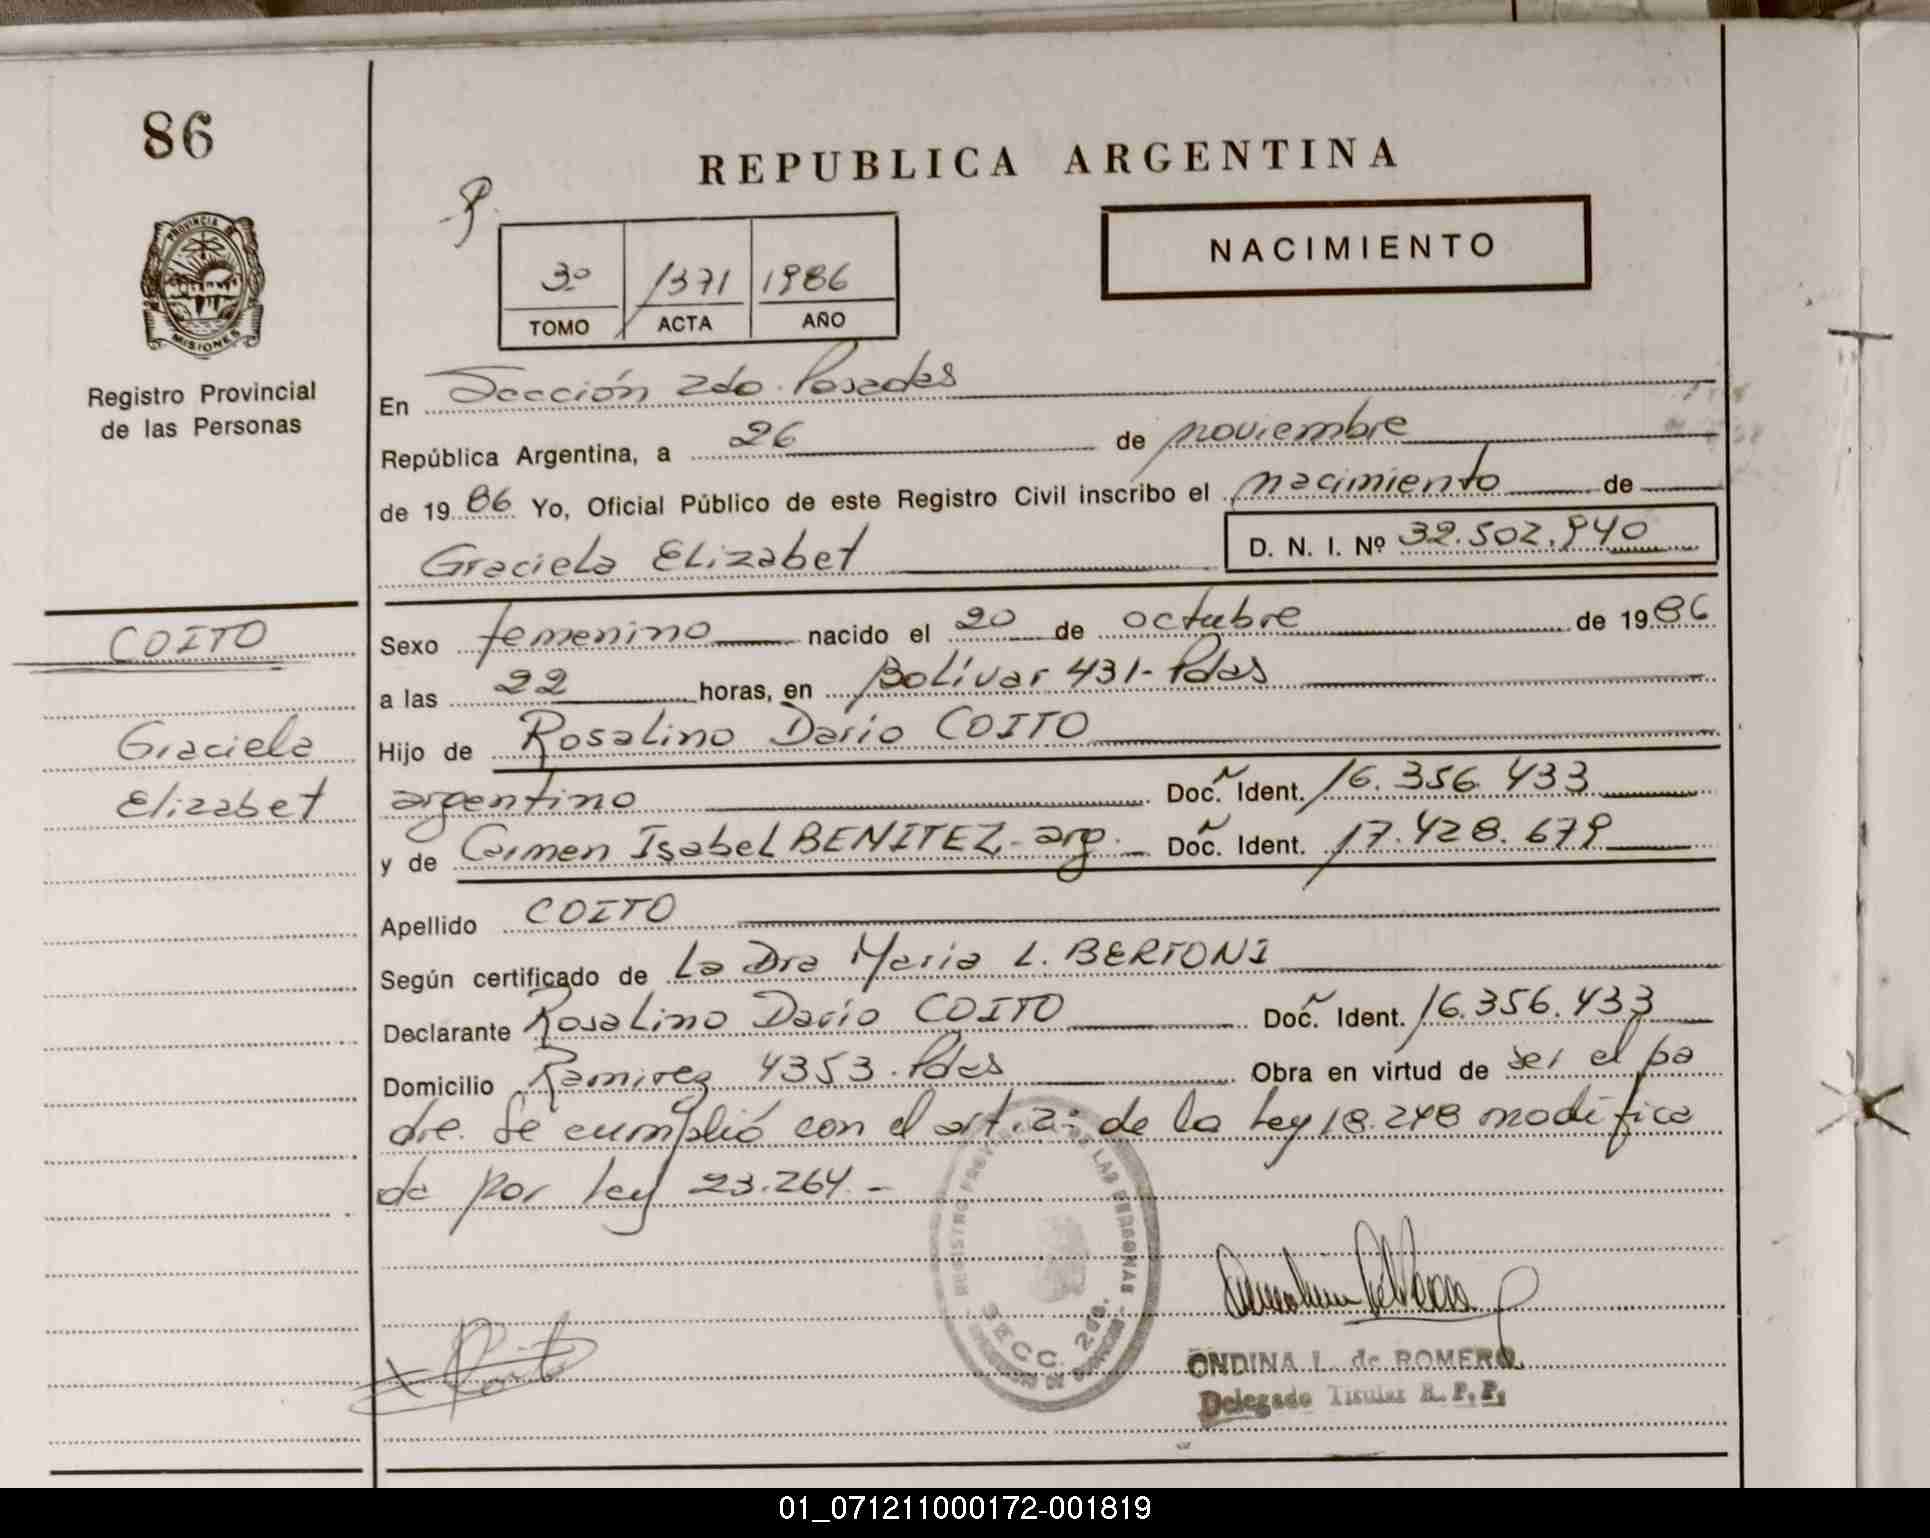 86
REPUBLICA ARGENTINA
PROVINCIA D
MISIONES
NACIMIENTO
3º 1371 1986
TOMO ACTA AÑO
Registro Provincial
de las Personas
En Sección 2da. Posadas
República Argentina, a 26 de noviembre
de 1986 Yo, Oficial Público de este Registro Civil inscribo el nacimiento de
Graciela Elizabet D. N. I. Nº 32.502.940
COITO
Graciela
Elizabet
Sexo femenino nacido el 20 de octubre de 1986
a las 22 horas, en Bolívar 431 - Pdas
Hijo de Rosalino Dario COITO
argentino Doc. Ident. 16.356.433
y de Carmen Isabel BENITEZ - arg. Doc. Ident. 17.428.679
Apellido COITO
Según certificado de La Dra Maria L. BERTONI
Declarante Rosalino Darío COITO Doc. Ident. 16.356.433
Domicilio Ramirez 4353. Pdas Obra en virtud de ser el pa
dre. Se cumplió con el art. 2: de la Ley 18.248 modifica
da por ley 23.264.-
LAS PERSONAS
SECC. 2da.
ONDINA L. de ROMERO
Delegado Titular R. P. P.
01_071211000172-001819